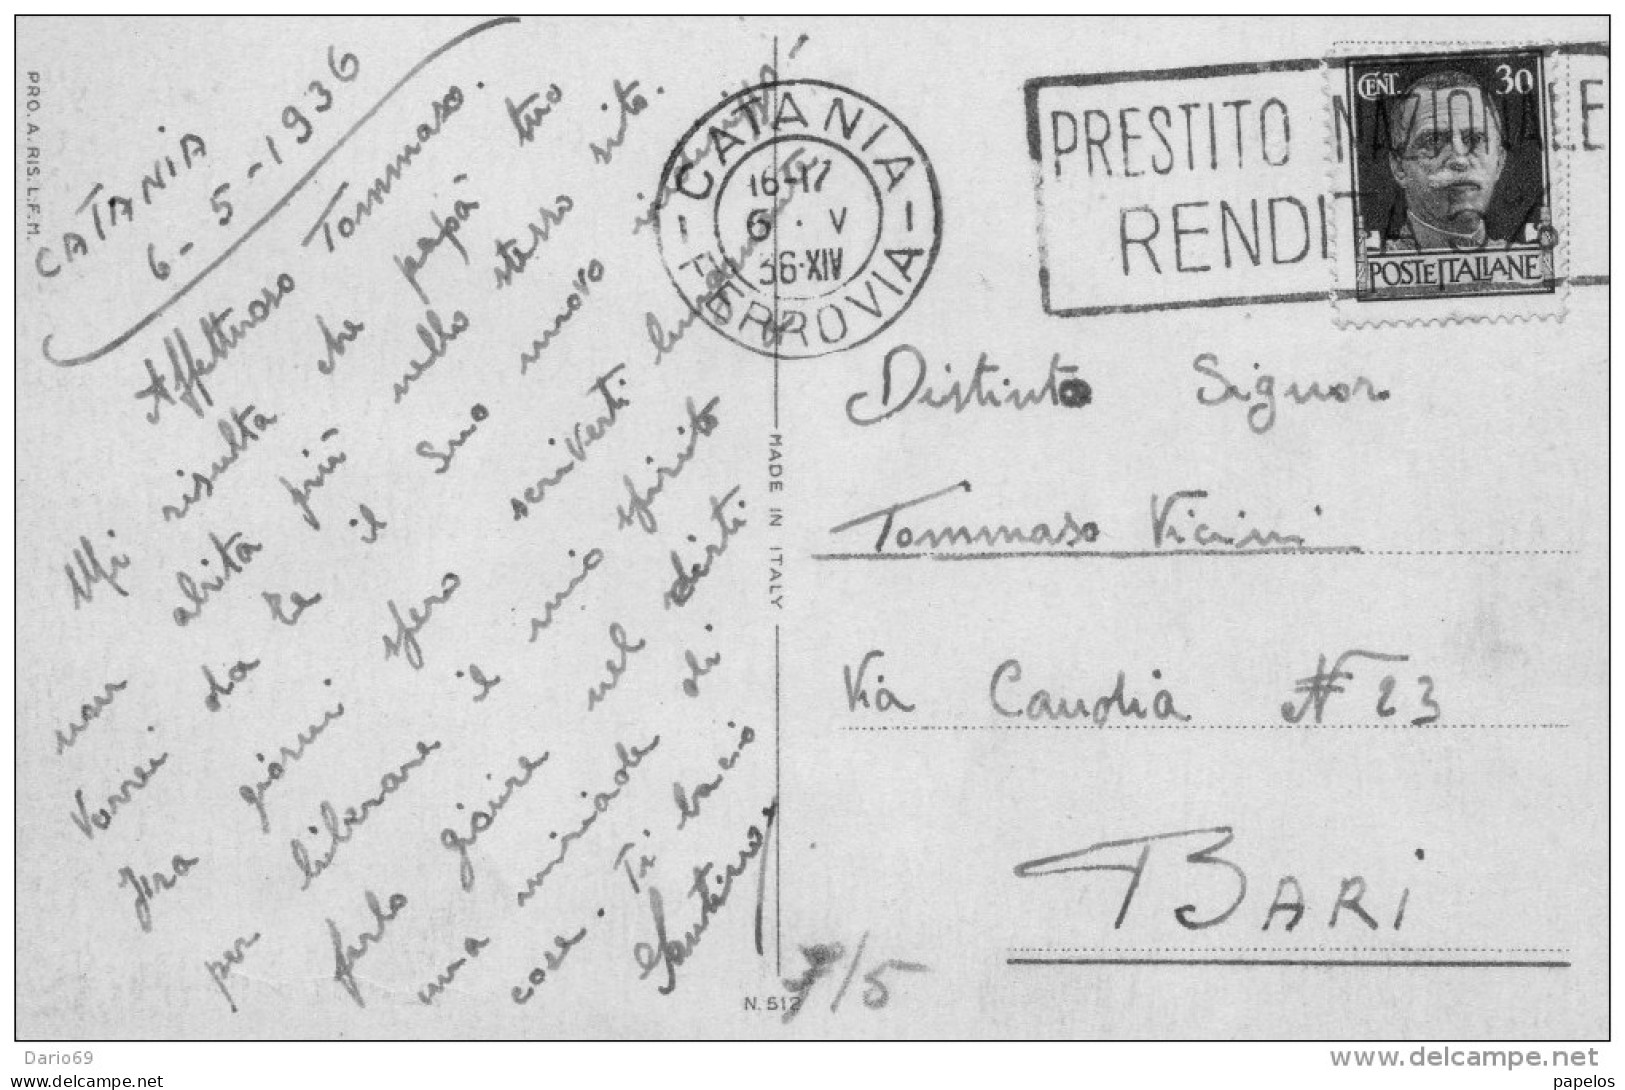 PRO. A. RIS. L. F. M.
CATANIA
6-5-1936
Affettuoso Tommaso.
Mi risulta che papà tuo
non abita più nello stesso sito.
Vorrei da te il suo nuovo
Fra giorni spero scriverti lungamente
per liberare il mio spirito
farlo gioire nel dirti
una miriade di
cose. Ti bacio
Santino
MADE IN ITALY
N. 512
7/5
CATANIA
16-17
6 . V
36.XIV
FERROVIA
PRESTITO NAZIONALE
RENDITA 5%
CENT. 30
POSTE ITALIANE
Distinto Signor
Tommaso Vicini
Via Caudia N 23
BARI
Dario69
www.delcampe.net
www.delcampe.net
papelos